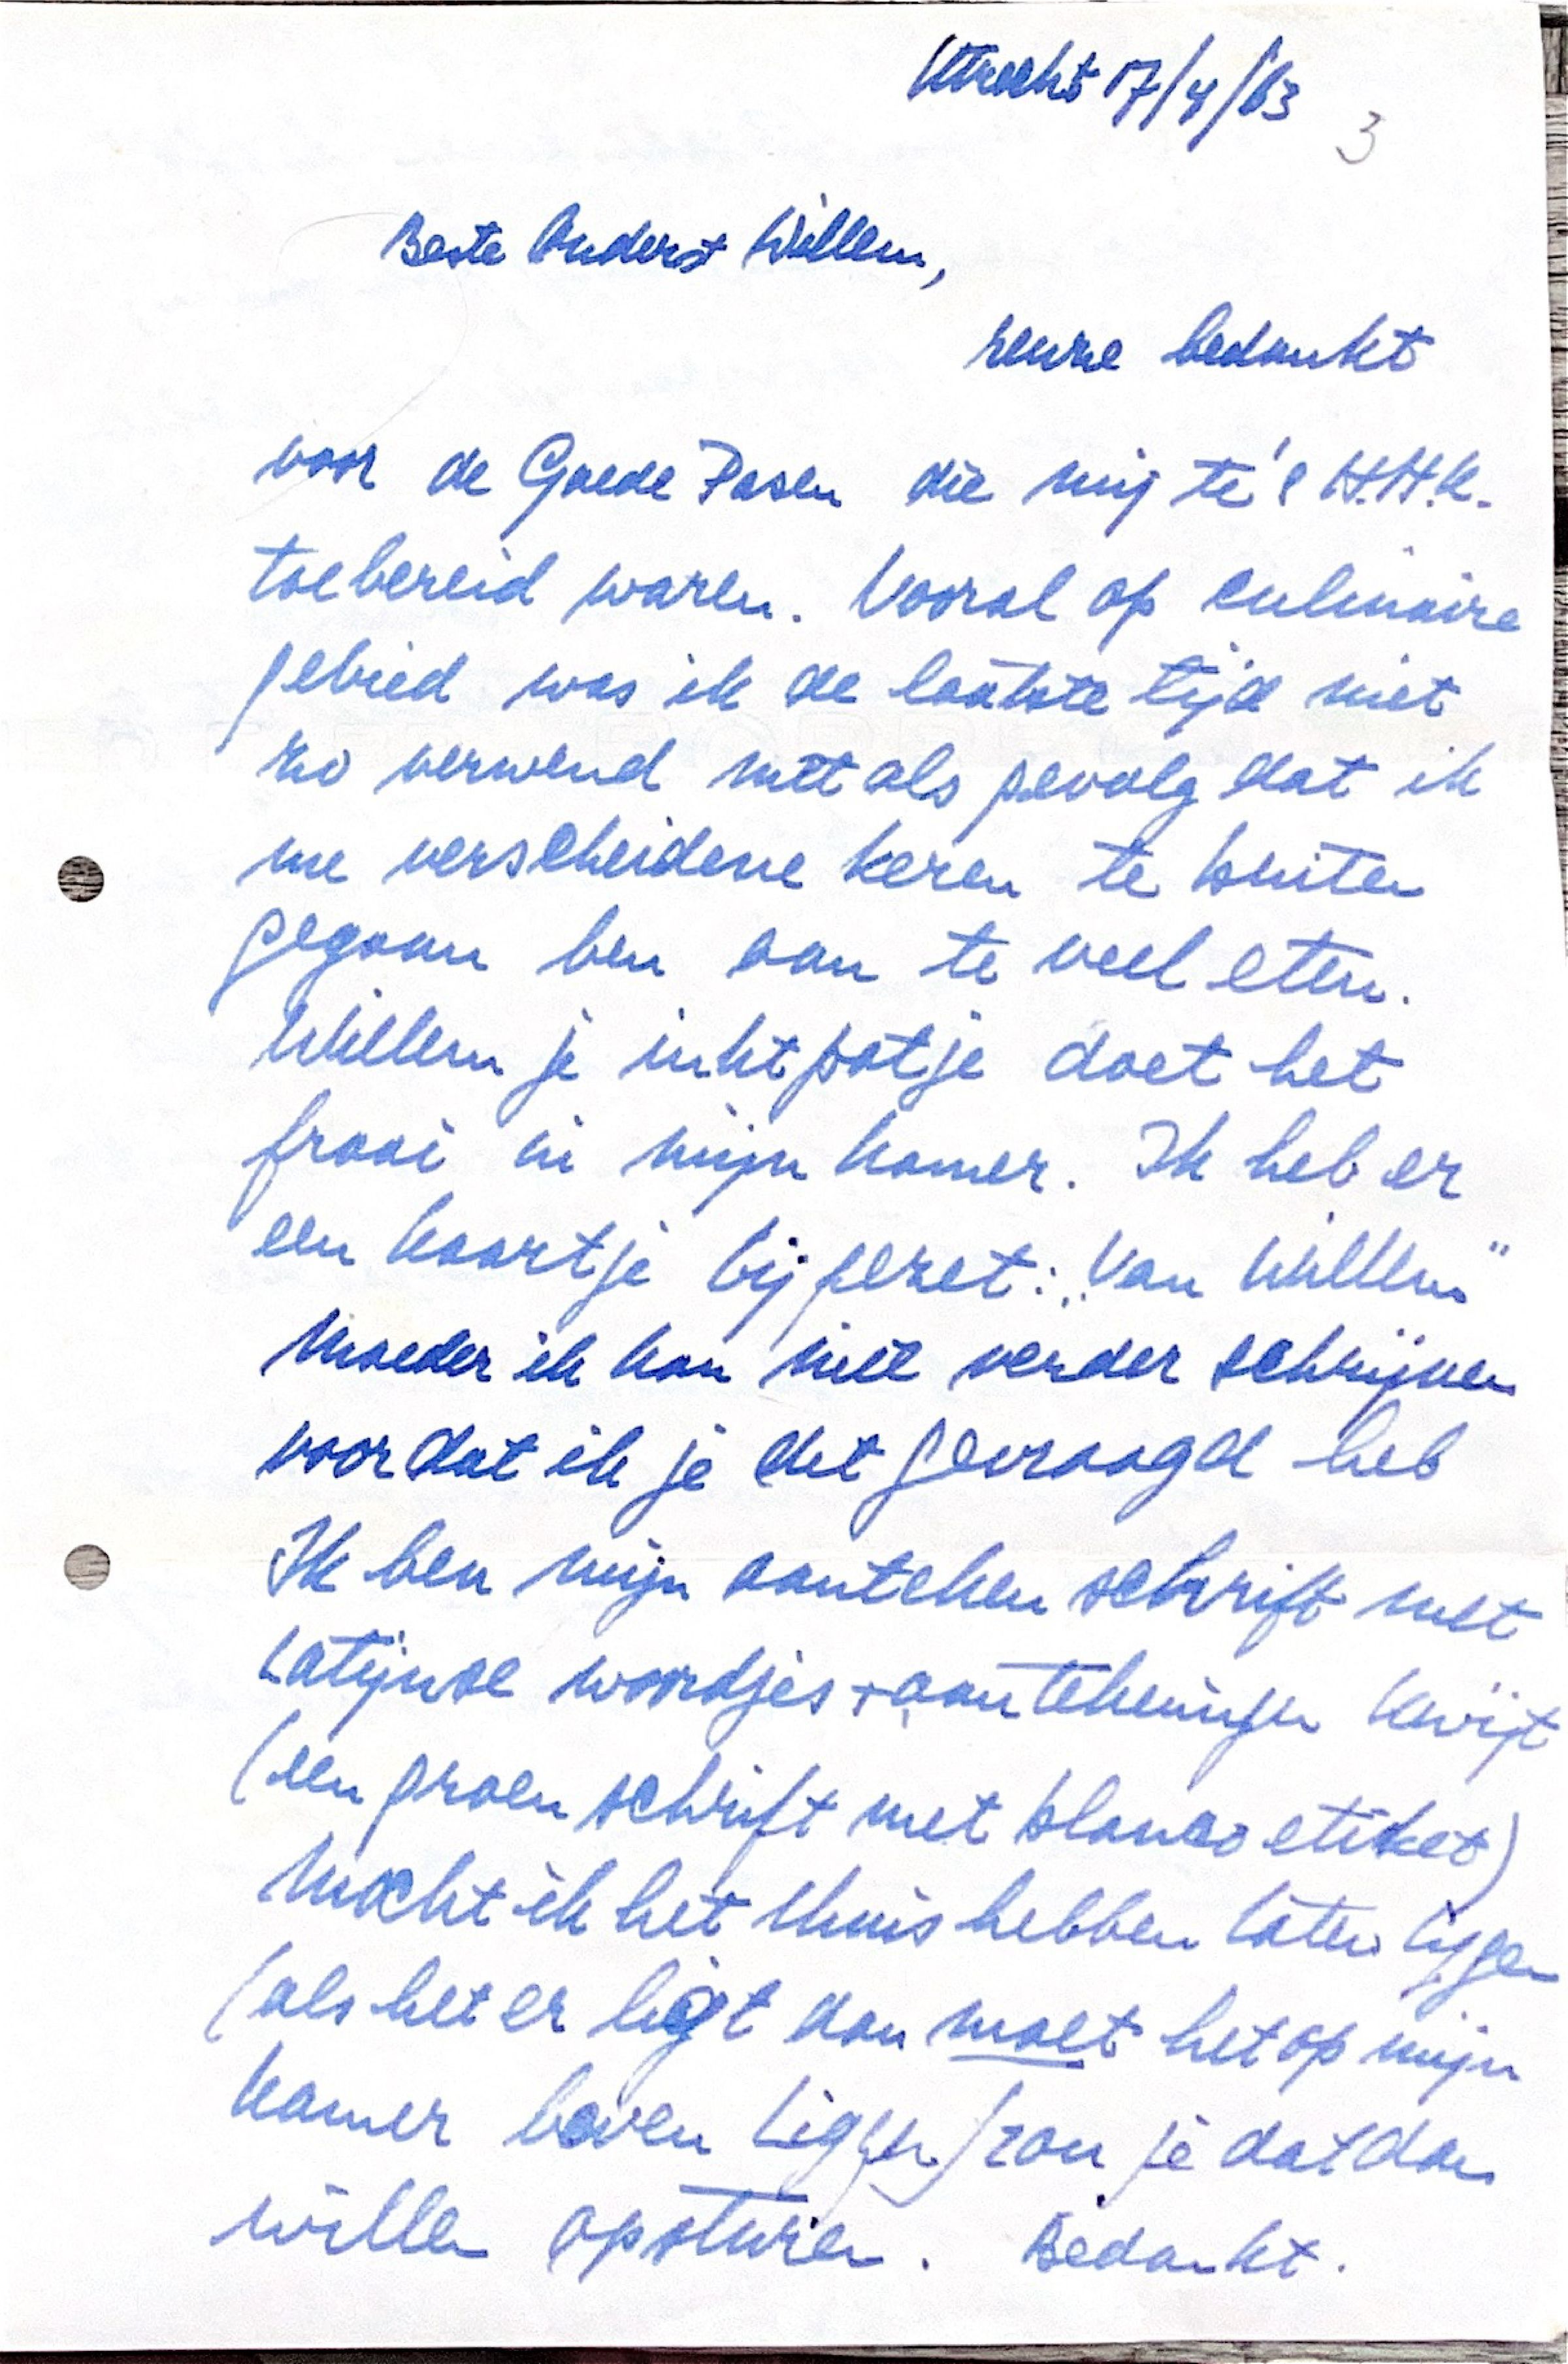 Utrecht 17/4/63
3
Beste Ouders + Willem,
reuze bedankt
voor de Goede Pasen die mij te 's H.H.K.
toebereid waren. Vooral op culinaire
gebied was ik de laatste tijd niet
zo verwend met als gevolg dat ik
me verscheidene keren te buiten
gegaan ben aan te veel eten.
Willem je inktpotje doet het
fraai in mijn kamer. Ik heb er
een kaartje bij gezet: „Van Willem"
Moeder ik kan niet verder schrijven
voordat ik je dit gevraagd heb
Ik ben mijn aanteken schrift met
Latijnse woordjes + aantekeningen kwijt
(een groen schrift met blanco etiket)
Mocht ik het thuis hebben laten liggen
(als het er ligt dan moet het op mijn
kamer boven liggen) zou je dat dan
willen opsturen. Bedankt.